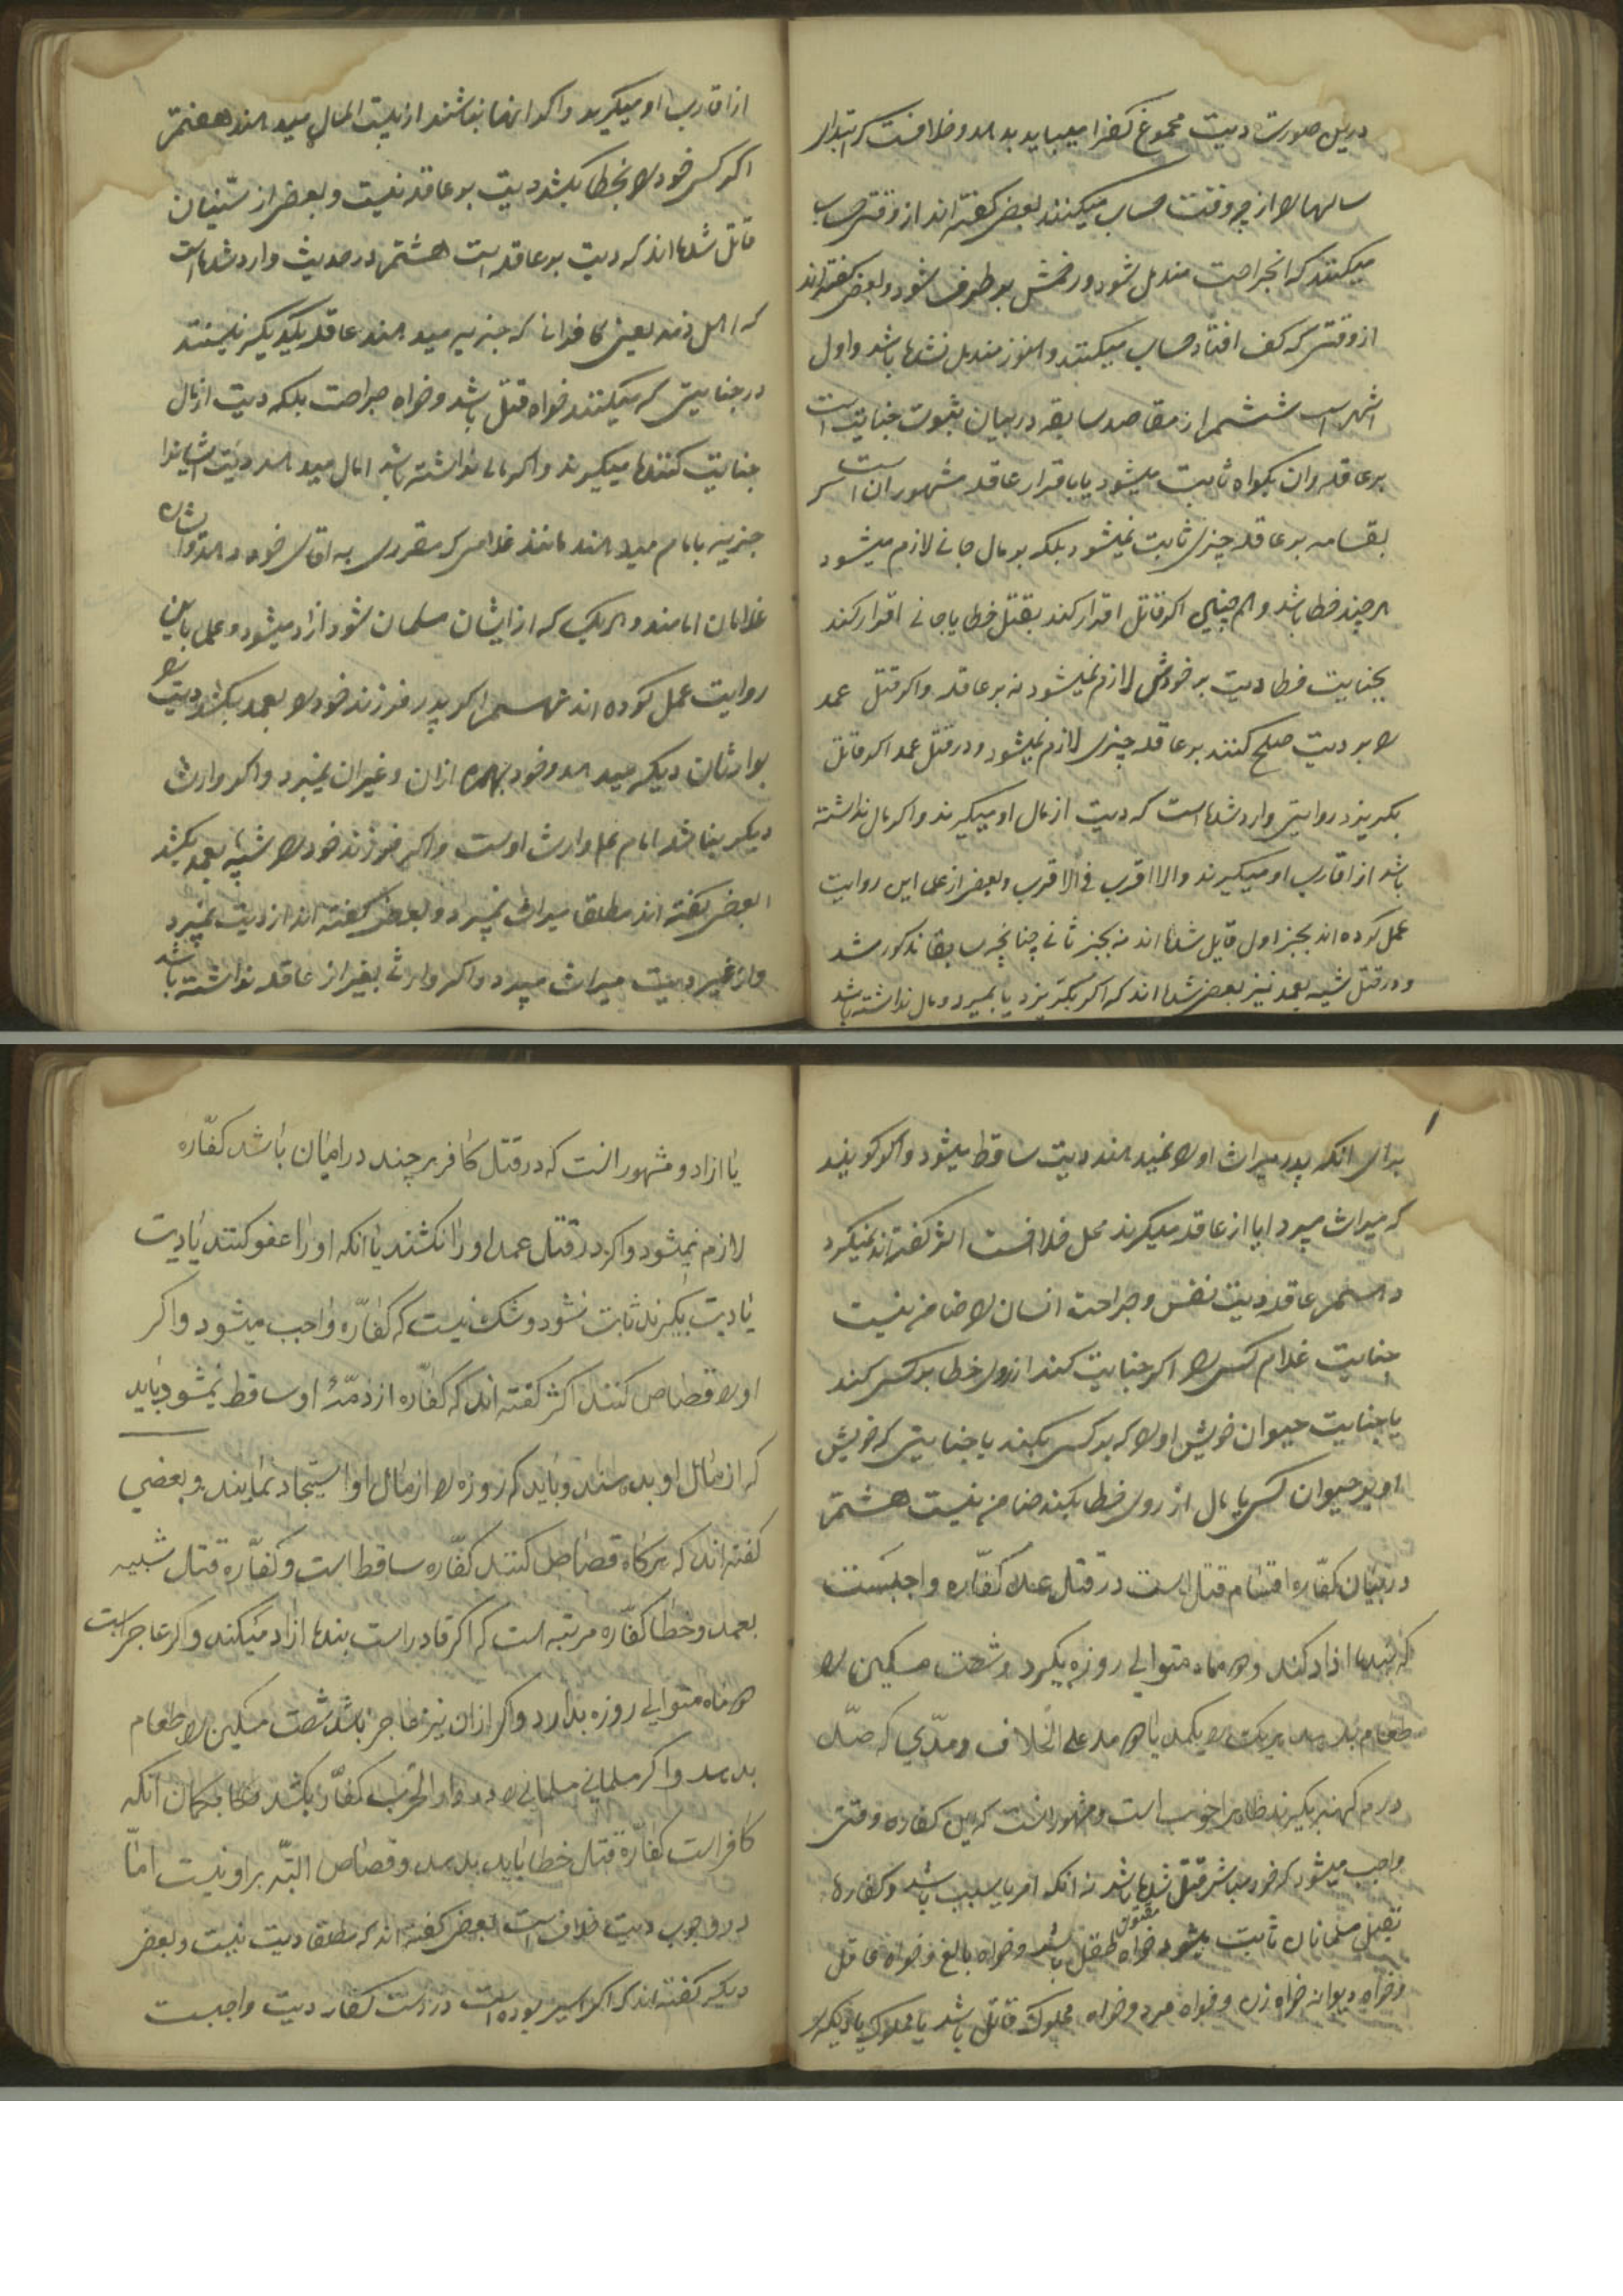 درین صورت دیت مجموع کف را میباید بدهد و خلافست که ابتدای
سالها را از چه وقت حساب میکنند بعضی گفته اند از وقتی حساب
میکنند که انجراحت مندمل شود و زخمش برطرف شود و بعضی گفته اند
از وقتی که کف افتاد حساب میکنند و هنوز مندمل نشده باشد و اول
اشهر است ششم از مقاصد سابقه در بیان ثبوت جنایت است
بر عاقله و ان بگواه ثابت میشود یا باقرار عاقله مشهور ان است که
بقسامه بر عاقله چیزی ثابت نمیشود بلکه بر مال جانی لازم میشود
هر چند خطا باشد و هم چنین اکر قاتل اقرار کند بقتل خطا یا جانی اقرار کند
بجنایت خطا دیت بر خودش لازم میشود نه بر عاقله و اکر قتل عمد
را بر دیت صلح کنند بر عاقله چیزی لازم نمیشود و در قتل عمد اکر قاتل
بکریزد روایتی وارد شده است که دیت از مال او میکیرند و اکر مال نداشته
باشد از اقارب او میکیرند والا اقرب فی الاقرب و بعضی از علما این روایت
عمل کرده اند بجز اول قایل شده اند نه بجز ثانی چنانچه سابقا مذکور شد
و در قتل شبیه بعمد نیز بعضی شده اند که اکر بکریزد یا بمیرد و مال نداشته باشد
از اقارب او میکیرند و اکر انها نباشند از بیت المال میدهند هفتم
اکر کسی خود را بخطا بکشد دیت بر عاقله نیست و بعضی از سنیان
قائل شده اند که دیت بر عاقله است هشتم در حدیث وارد شده است
که اهل ذمه یعنی کافرانی که جزیه میدهند عاقله یکدیکر نیستند
در جنایتی که میکنند خواه قتل باشد و خواه جراحت بلکه دیت از مال
جنایت کننده میکیرند و اکر مالی نداشته باشد امام میدهد دیت ایشانرا
جزیه بامام میدهند مانند غلامی که مقرری به اقای خود دهد و ایشان
غلامان امامند و هر یک که از ایشان مسلمان شود ازاد میشود و عمل باین
روایت عمل کرده اند نهم اکر پدر فرزند خود را بعمد بکشد دیت را
بوارثان دیکر میدهد و خود بهره ازان و غیر ان نمیبرد و اکر وارث
دیکر نباشد امام ع وارث اوست و اکر فرزند خود را شبیه بعمد بکشد
بعضی گفته اند مطلقا میراث نمیبرد و بعضی گفته اند از دیت نمیبرد
و از غیر دیت میراث میبرد و اکر وارثی بغیر از عاقله نداشته باشد
برای انکه پدر میراث او را نمیدهند دیت ساقط میشود و اکر کویند
که میراث میبرد ایا از عاقله میکیرند محل خلافست اکثر گفته اند نمیکیرد
دهم عاقله دیت نفس و جراحت انسان را ضامن نیست
جنایت غلام کسی را اکر جنایت کند از روی خطا بر کسی کند
یا جنایت حیوان خویش او را که بر کسی بکند یا جنایتی که خویش
او بر حیوان کسی یا مال از روی خطا بکند ضامن نیست هشتم
در بیان کفّاره اقسام قتل است در قتل عمد کفّاره واجبست
که بنده ازاد کند و دو ماه متوالی روزه بکیرد و شصت مسکین را
طعام بدهد هر یک را یکمد یا دو مد علی الخلاف و مدّی که صد
درم کهنه بکیرند ظاهرا خوب است و مشهور انست که این کفاره وقتی
واجب میشود که خود مباشر قتل شده باشد نه انکه امر یا سبب باشد و کفاره
بقتل مسلمانان ثابت میشود خواه مقتول طفل باشد و خواه بالغ و خواه عاقل
و خواه دیوانه خواه زن و خواه مرد و خواه مملوک قاتل باشد یا مملوک یا دیکری
یا ازاد و مشهور انست که در قتل کافر هر چند در امان باشد کفّاره
لازم نمیشود و اکر در قتل عمد او را نکشند یا انکه او را عفو کنند یا دیت
یا دیت بکیرند ثابت نشود و شک نیست که کفّاره واجب میشود و اکر
او را قصاص کنند اکثر گفته اند که کفّاره از ذمّهٔ او ساقط نمیشود و باید
که از مال او بدهند و باید که روزه را از مال او استیجار نمایند و بعضی
گفته اند که هرکاه قصاص کنند کفّاره ساقط است و کفّاره قتل شبیه
بعمد و خطا کفّاره مرتبه است که اکر قادر است بنده ازاد میکند و اکر عاجز است
دو ماه متوالی روزه بدارد و اکر ازان نیز عاجز باشد شصت مسکین را طعام
بدهد و اکر مسلمانی مسلمانی را در دار الحرب کفّار بکشد بکمان انکه
کافر است کفّارهٔ قتل خطا باید بدهد و قصاص البتّه بر او نیست امّا
در وجوب دیت خلاف است بعضی گفته اند که مطلقا دیت نیست و بعضی
دیکر گفته اند که اکر اسیر بوده است در دست کفار دیت واجبست